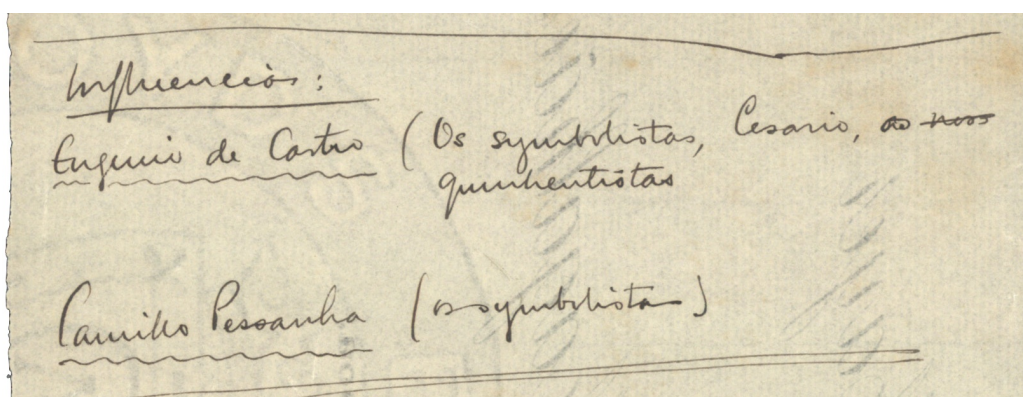 Influencias:
Eugenio de Castro (Os symbolistas, Cesario, os noss
quinhentistas
Camillo Pessanha (os symbolistas)